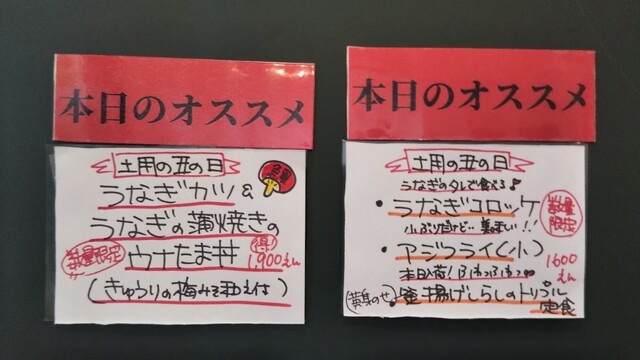 本日のオススメ
土用の丑の日
うなぎカツ&
うなぎの蒲焼きの
数量限定
ウナたま丼
得!
1,900えん
(きゅうりの梅みそ和え付)
本日のオススメ
土用の丑の日
うなぎのタレで食べる♪
・うなぎコロッケ
数量限定
小ぶりだけど…美味い!!
・アジフライ(小)
本日入荷!ふわっふわっ
1600えん
(黄身のせ)
・釜揚げしらすのトリプル
定食